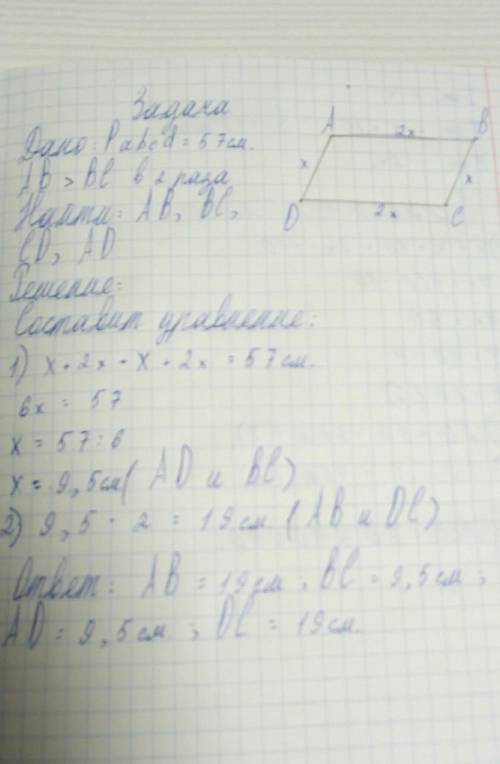 Задача
Дано: Pabcd = 57см.
AB > BC в 2 раза
Найти: AB, BC,
CD, AD.
Решение:
Составит уравнение:
1) x + 2x + x + 2x = 57см.
6x = 57
x = 57 : 6
x = 9,5см (AD и BC)
2) 9,5 · 2 = 19см. (AB и DC)
Ответ: AB = 19см, BC = 9,5см;
AD = 9,5см; DC = 19см.
A 2x B
x x
D 2x C